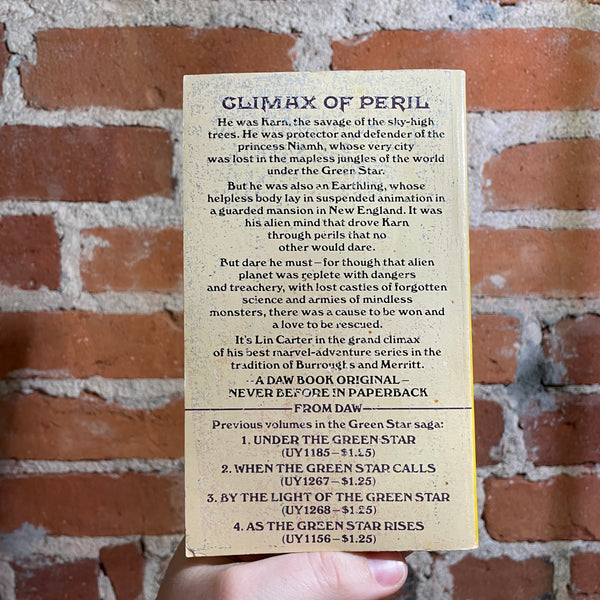 CLIMAX OF PERIL
He was Karn, the savage of the sky-high
trees. He was protector and defender of the
princess Niamh, whose very city
was lost in the mapless jungles of the world
under the Green Star.
But he was also an Earthling, whose
helpless body lay in suspended animation in
a guarded mansion in New England. It was
his alien mind that drove Karn
through perils that no
other would dare.
But dare he must—for though that alien
planet was replete with dangers
and treachery, with lost castles of forgotten
science and armies of mindless
monsters, there was a cause to be won and
a love to be rescued.
It's Lin Carter in the grand climax
of his best marvel-adventure series in the
tradition of Burroughs and Merritt.
—A DAW BOOK ORIGINAL—
NEVER BEFORE IN PAPERBACK
FROM DAW
Previous volumes in the Green Star saga:
1. UNDER THE GREEN STAR
(UY1185—$1.25)
2. WHEN THE GREEN STAR CALLS
(UY1267—$1.25)
3. BY THE LIGHT OF THE GREEN STAR
(UY1268—$1.25)
4. AS THE GREEN STAR RISES
(UY1156—$1.25)